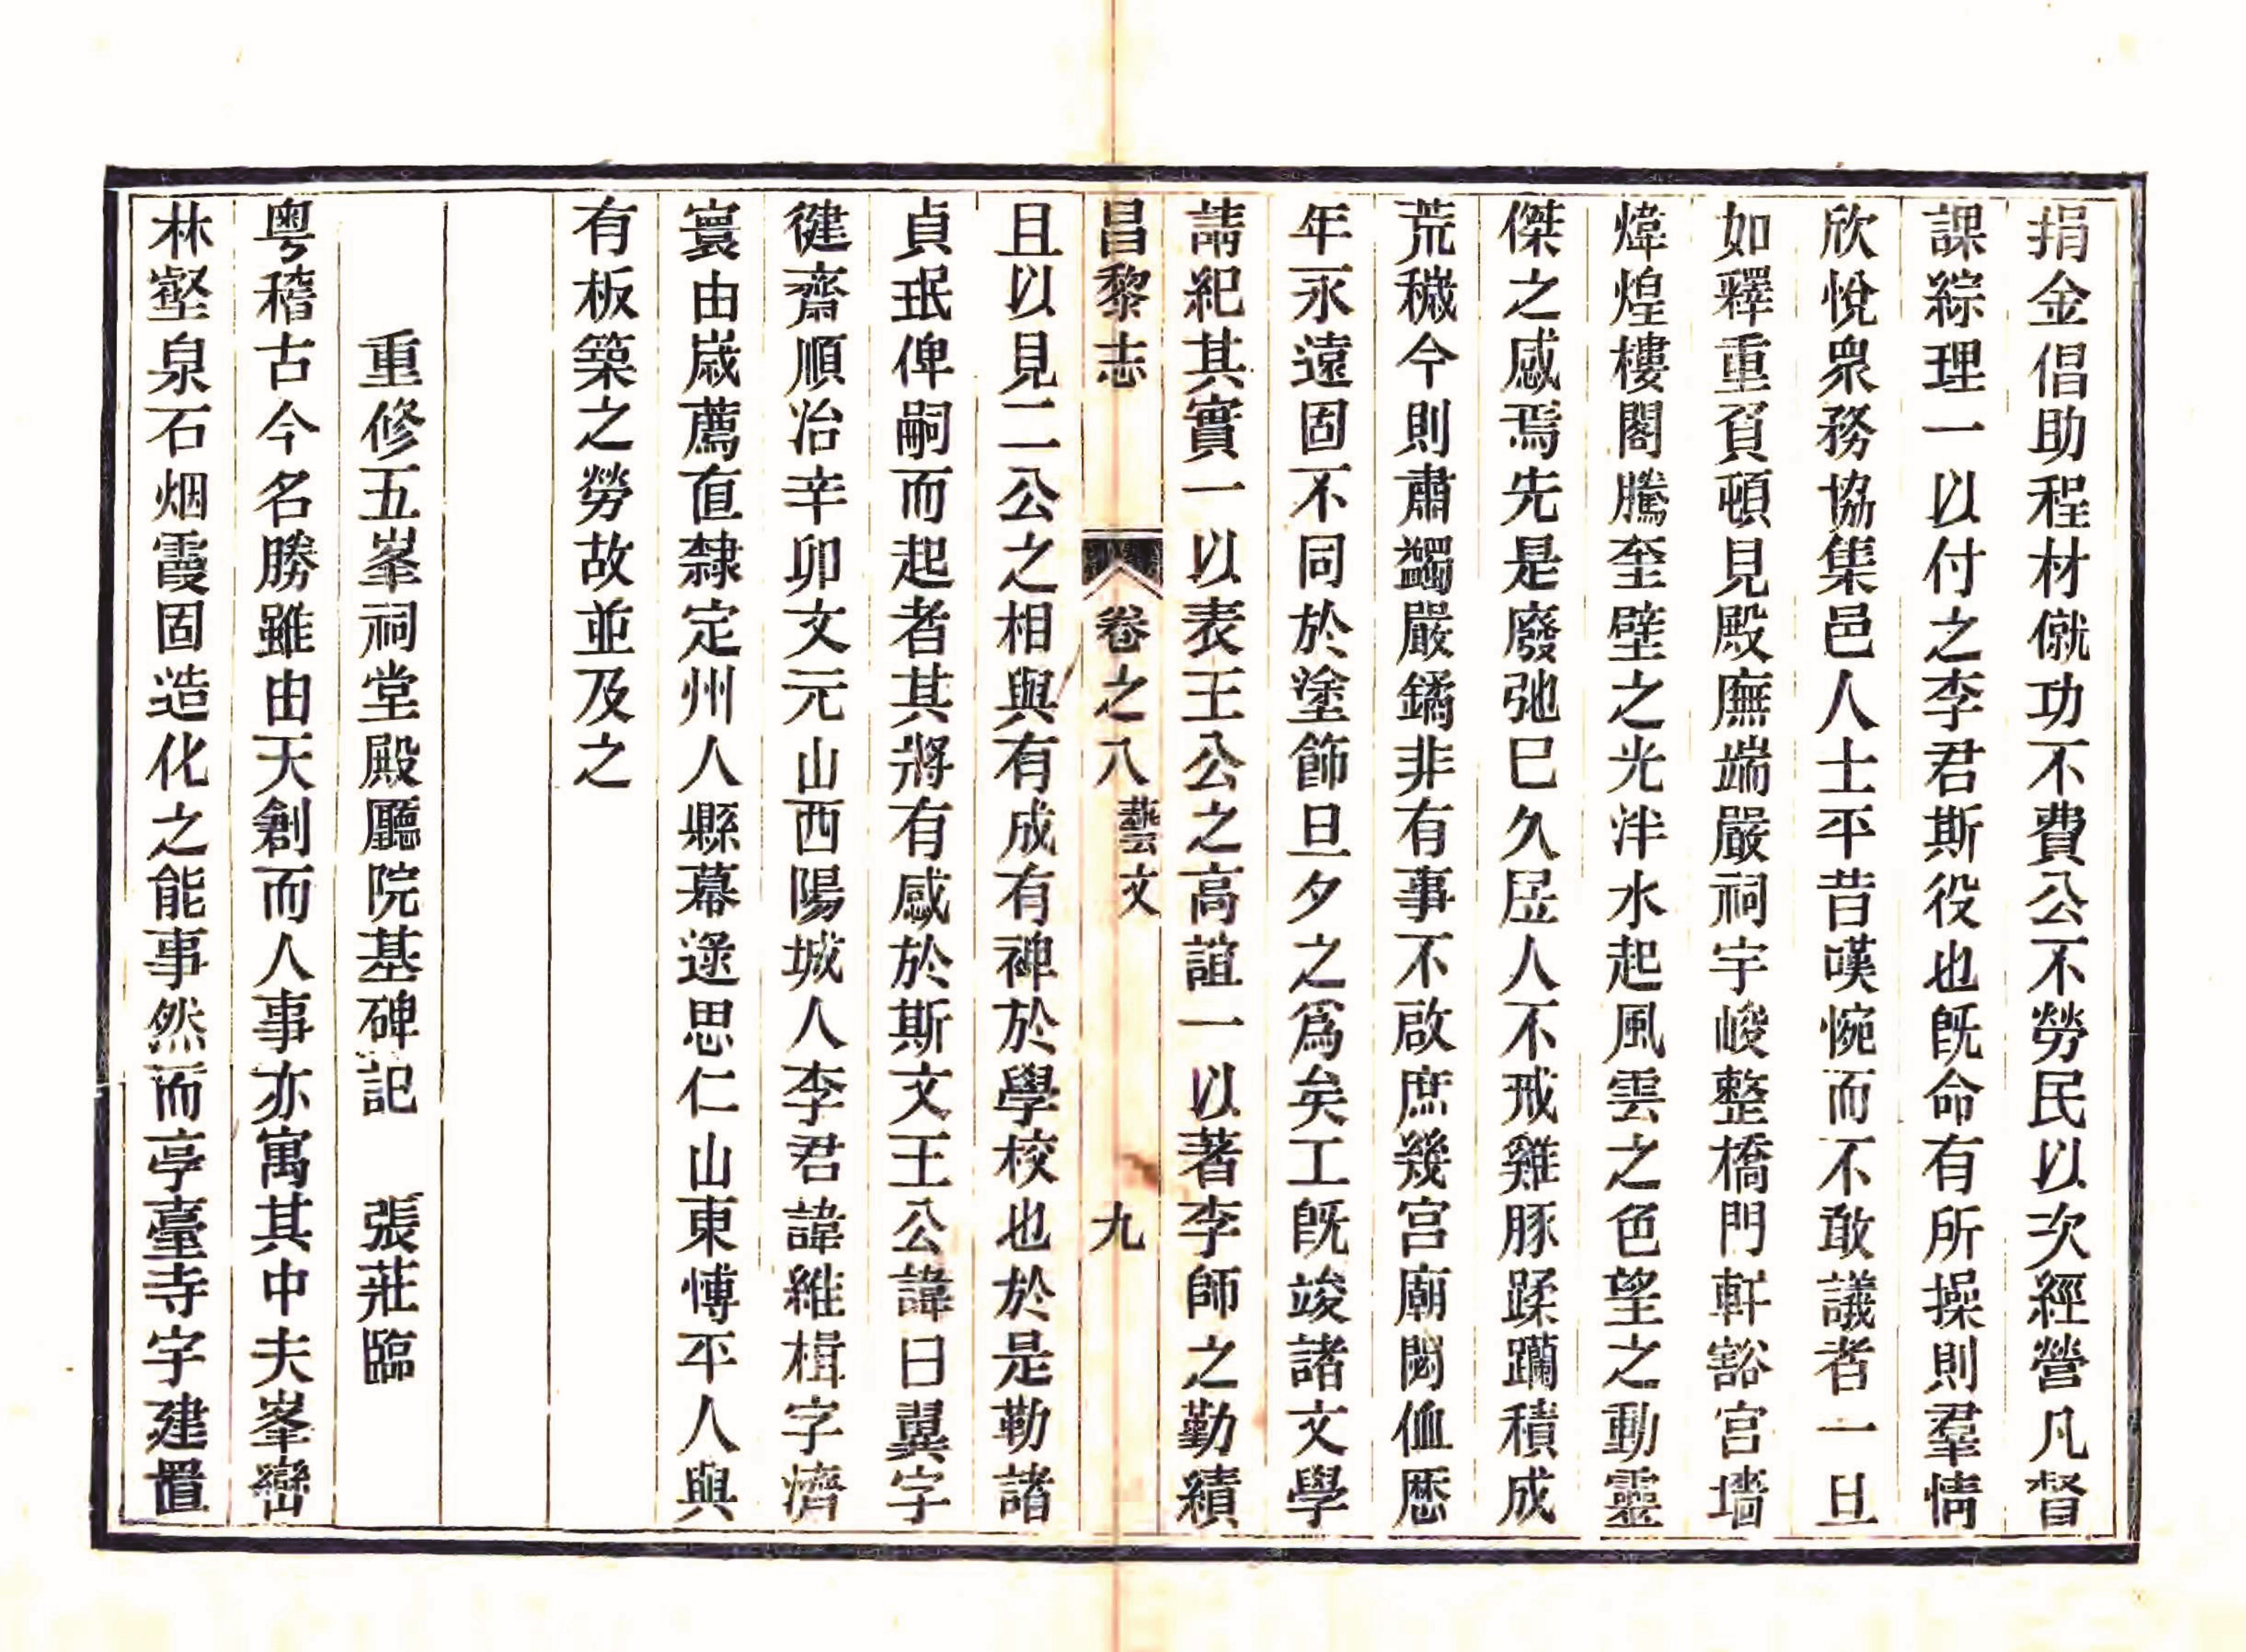 捐金倡助程材僦功不費公不勞民以次經營凡督
課綜理一以付之李君斯役也旣命有所操則羣情
欣悅眾務協集邑人士平昔嘆惋而不敢議者一旦
如釋重負頓見殿廡端嚴祠宇峻整橋門軒豁宫墻
煒煌樓閣騰奎壁之光泮水起風雲之色望之動靈
傑之感焉先是廢弛巳久居人不戒雞豚蹂躪積成
荒穢今則肅蠲嚴鐍非有事不啟庶幾宫廟閟侐歷
年永遠固不同於塗飾旦夕之爲矣工旣竣諸文學
請紀其實一以表王公之高誼一以著李師之勤績
昌黎志 卷之八 藝文 九
且以見二公之相與有成有裨於學校也於是勒諸
貞珉俾嗣而起者其將有感於斯文王公諱曰翼字
徤齋順冶辛卯文元山西陽城人李君諱維楫字濟
寰由歲薦直隸定州人縣幕逯思仁山東愽平人與
有板築之勞故並及之
重修五峯祠堂殿廳院基碑記 張莊臨
粤稽古今名勝雖由天創而人事亦寓其中夫峯巒
林壑泉石烟霞固造化之能事然而亭臺寺宇建置